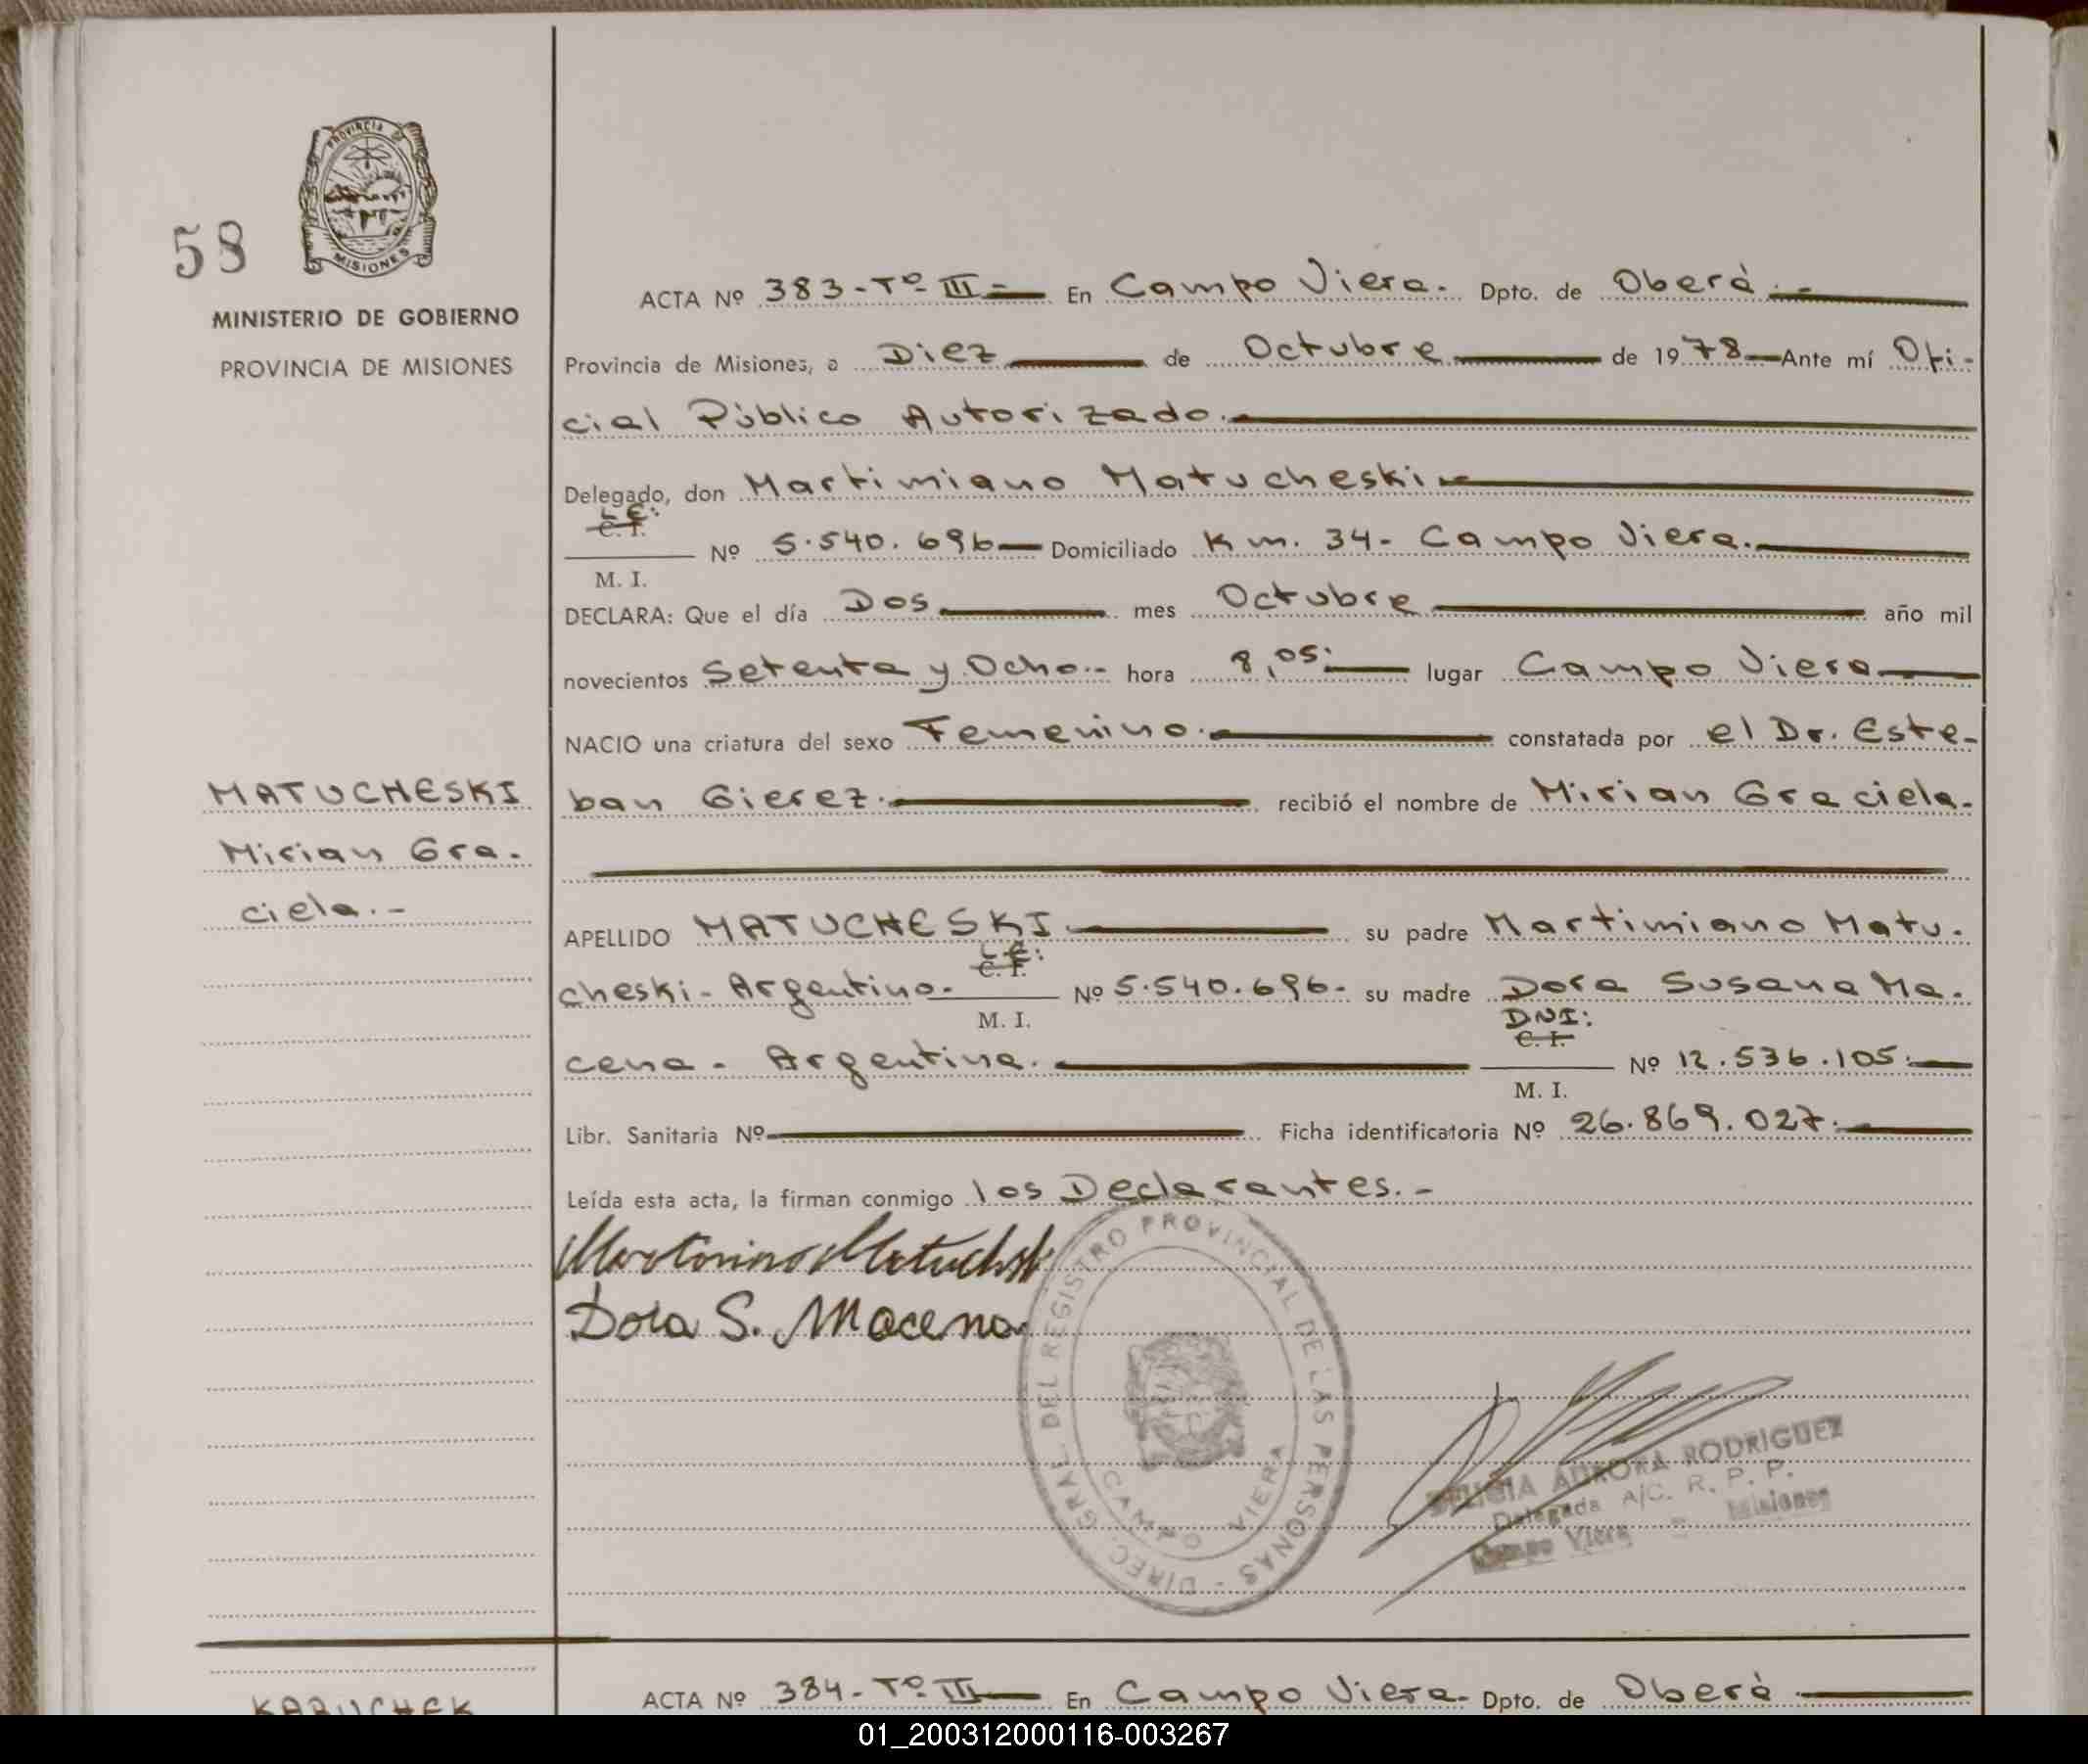 PROVINCIA DE
MISIONES
58
MINISTERIO DE GOBIERNO
PROVINCIA DE MISIONES
ACTA Nº 383-Tº III- En Campo Viera. Dpto. de Oberá.-
Provincia de Misiones, a Diez de Octubre de 1978 Ante mí Ofi-
cial Público Autorizado.
Delegado, don Martimiano Matucheski
L.E:
C. I.
Nº 5.540.696 Domiciliado Km. 34- Campo Viera.
M. I.
DECLARA: Que el día Dos mes Octubre año mil
novecientos Setenta y Ocho.- hora 8,05. lugar Campo Viera
NACIO una criatura del sexo Femenino. constatada por el Dr. Este-
MATUCHESKI ban Gierez. recibió el nombre de Mirian Graciela.
Mirian Gra-
ciela.-
APELLIDO MATUCHESKI su padre Martimiano Matu-
L.E:
C. I.
cheski- Argentino. Nº 5.540.696- su madre Dora Susana Ma-
M. I.
DNI:
C. I.
cena- Argentina. Nº 12.536.105.
M. I.
Libr. Sanitaria Nº Ficha identificatoria Nº 26.869.027.
Leída esta acta, la firman conmigo los Declarantes.-
Dora S. Macena
DIREC. GRAL. DEL REGISTRO PROVINCIAL DE LAS PERSONAS -
CAMPO VIERA
AURORA RODRIGUEZ
Delegada A/C. R. P. P.
Campo Viera - Misiones
ACTA Nº 384-Tº III En Campo Viera- Dpto. de Oberá
KABUCHEK
01_200312000116-003267